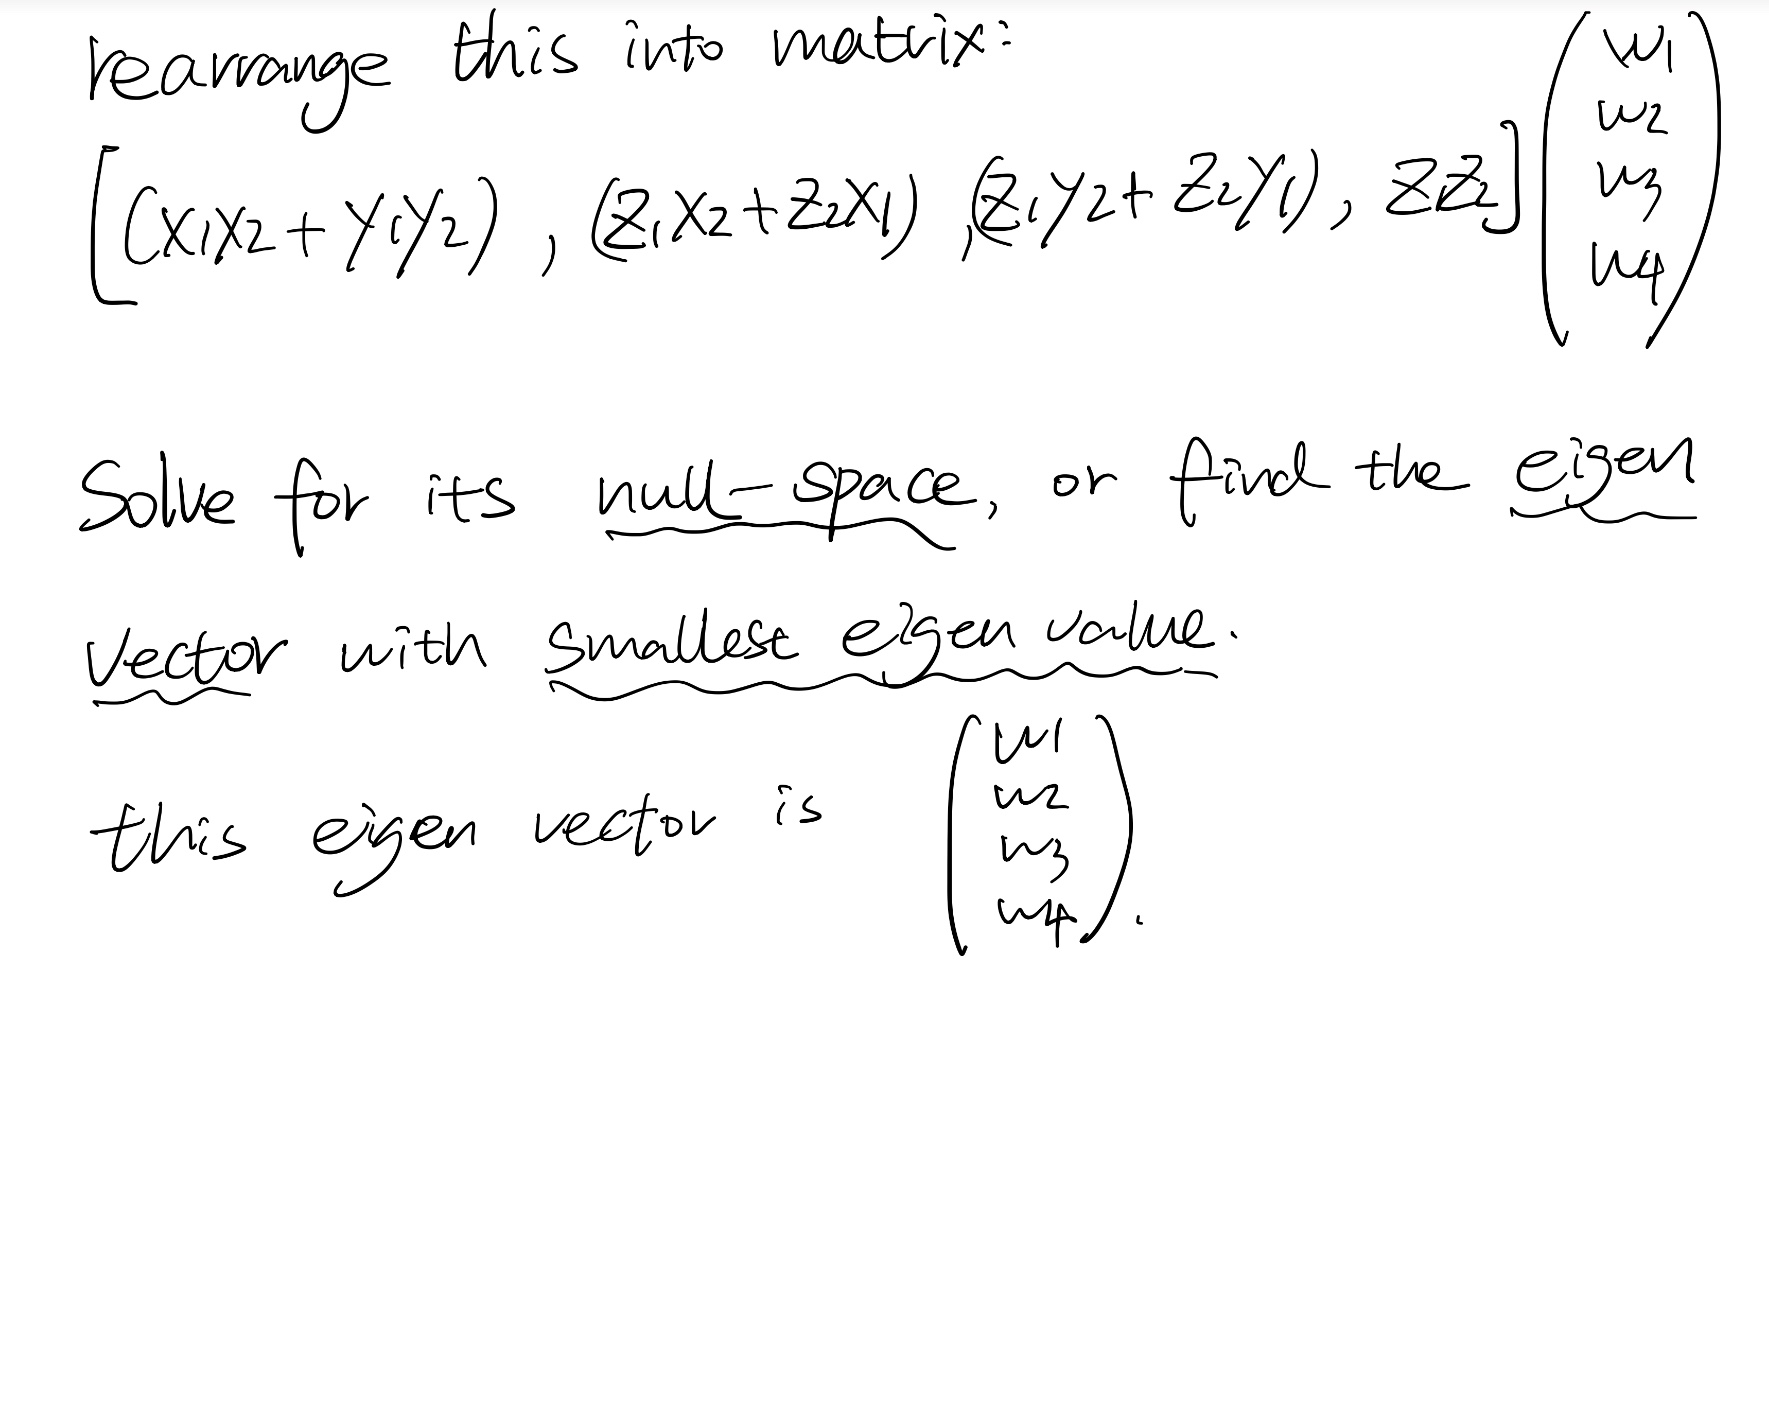 rearrange this into matrix:
[(x1x2 + y1y2), (z1x2 + z2x1), (z1y2 + z2y1), z1z2] (w1 w2 w3 w4)
Solve for its null-space, or find the eigen
vector with smallest eigen value.
this eigen vector is (w1 w2 w3 w4).